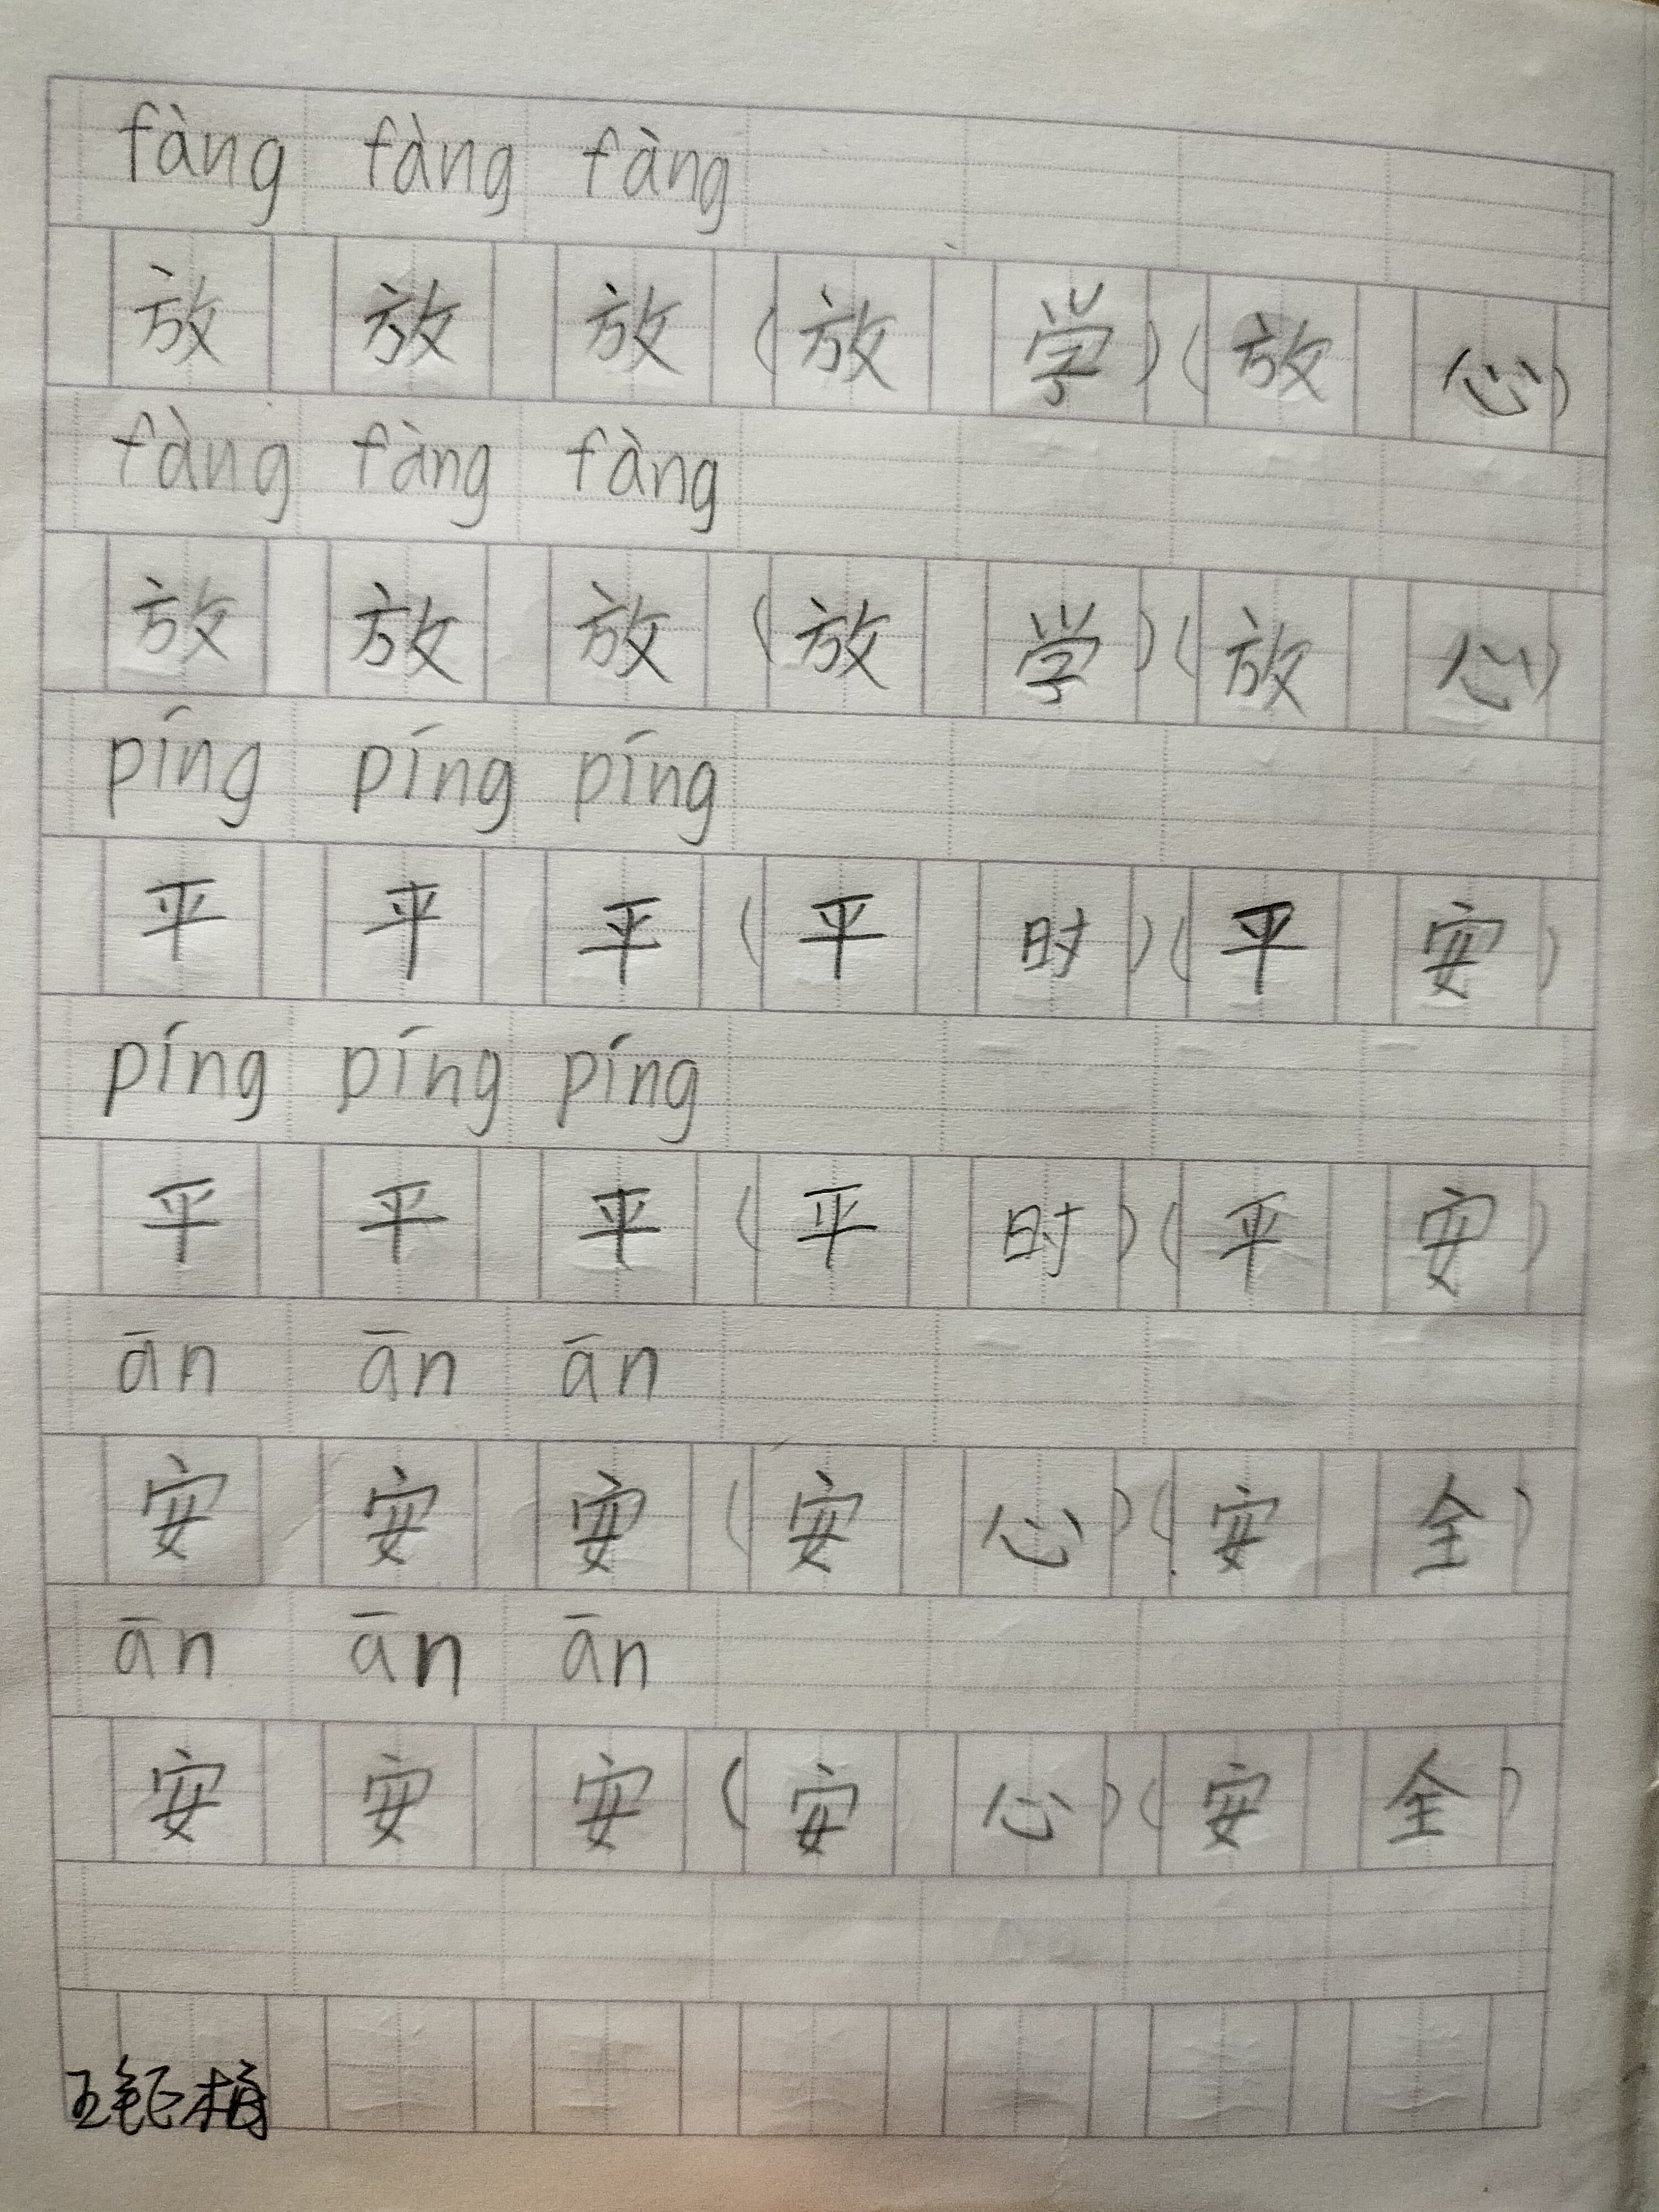 fàng fàng fàng
放 放 放 (放 学)(放 心)
fàng fàng fàng
放 放 放 (放 学)(放 心)
píng píng píng
平 平 平 (平 时)(平 安)
píng píng píng
平 平 平 (平 时)(平 安)
ān ān ān
安 安 安 (安 心)(安 全)
ān ān ān
安 安 安 (安 心)(安 全)